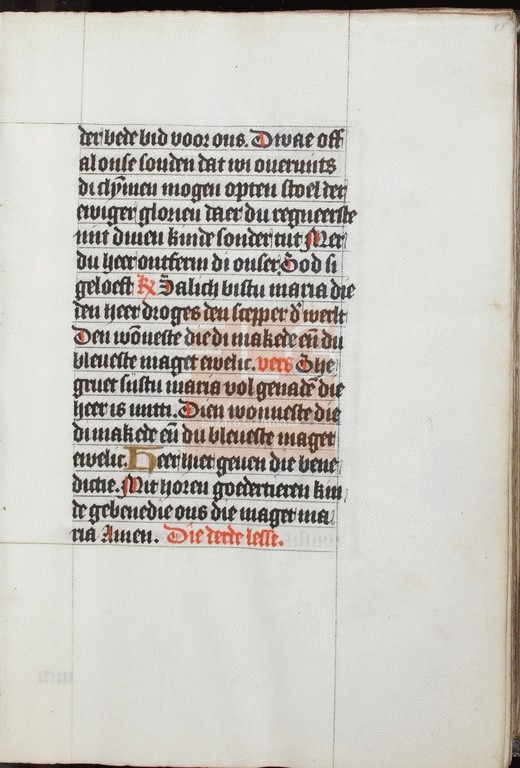 der bede bid voor ons. Dwae off
al onse sonden dat wi overmits
di clȳmen mogen opten stoel der
ewiger glorien daer du regneerste
mit dinen kinde sonder tut Mer
du heer ontferm di onser God si
geloeft R Salich bistu maria die
den heer droges den scepper d' werlt
Den wōneste die di makede en̄ du
bleueste maget ewelic. vers Ghe
gruet sijstu maria vol genadē die
heer is mitti. Dien wonneste die
di makede en̄ du bleueste maget
ewelic. Heer hier geuen die bene
dictie. Mit horen goedertieren kin
de gebenedie ons die maget ma
ria Amen. Die derde lesse.